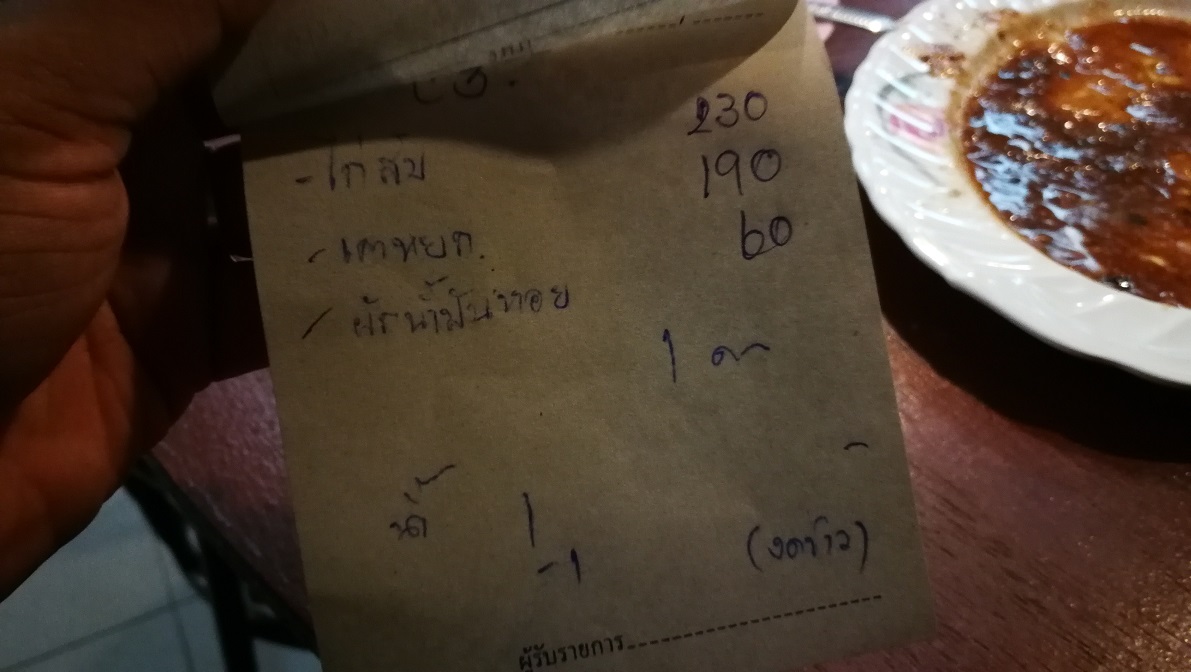 230
- ไก่สับ 190
- เตาหยก. 60
/ ผัดน้ำมันหอย
1
น้ำ 1
-1 (งดข้าว)
ผู้รับรายการ